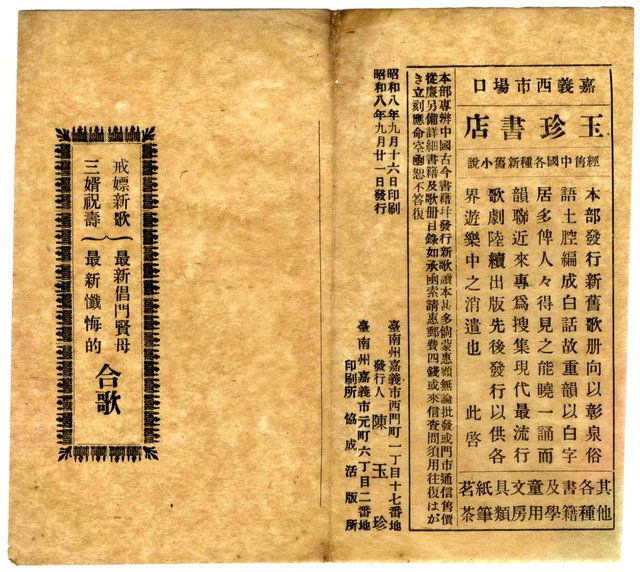 嘉義西市場口
玉珍書店
經售中國各種新舊小說
本部發行新舊歌册向以彰泉俗
語土腔編成白話故重韻以白字
居多俾人々得見之能曉一誦而
韻聯近來專爲搜集現代最流行
歌劇陸續出版先後發行以供各
界遊樂中之消遣也　此啓
其他
各種
書籍
及學
童用
文房
具類
紙筆
茗茶
本部專辦中國古今書籍幷發行新歌讀本甚多倘蒙惠顧無論批發或門市通信售價
從廉另備詳細書籍及歌册目錄如承函索請惠郵費四錢或來信查問須用往復はが
き立刻應命空函恕不答復
昭和八年九月十六日印刷
昭和八年九月廿一日發行
臺南州嘉義市西門町一丁目十七番地
發行人　陳玉珍
臺南州嘉義市元町六丁目二番地
印刷所　協成活版所
戒嫖新歌　最新倡門賢母
三婿祝壽　最新懺悔的
合歌